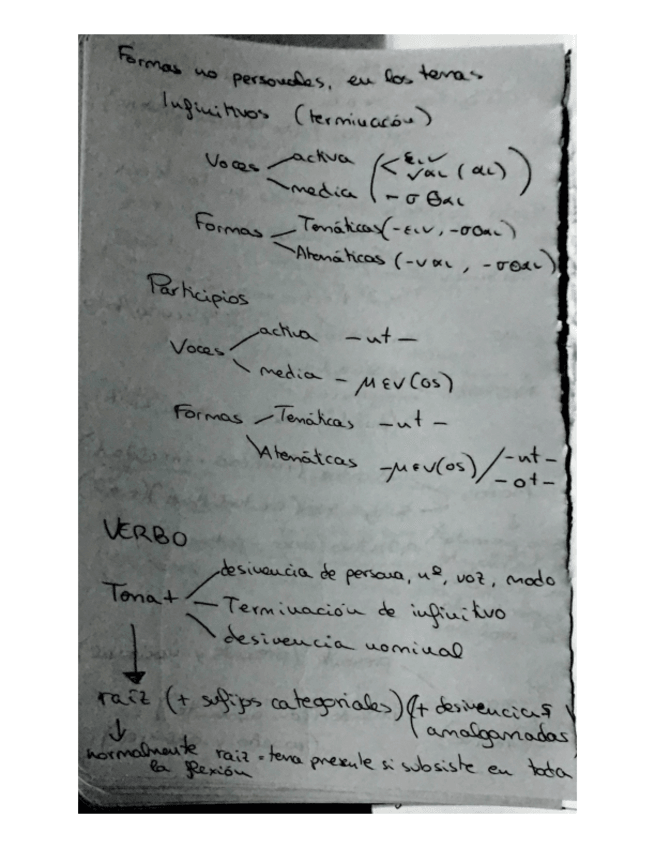 Formas no personales, en los temas
Infinitivos (terminación)
Voces activa ( < ειν
ναι (αι) )
media - σθαι
Formas Temáticas (-ειν, -σθαι)
Atemáticas (-ναι, -σθαι)
Participios
Voces activa -nt-
media - μεν(os)
Formas Temáticas -nt-
Atemáticas -μεν(os) / -nt-
-ot-
VERBO
Tema + desinencia de persona, nº, voz, modo
Terminación de infinitivo
desinencia nominal
raíz (+ sufijos categoriales) (+ desinencias
amalgamadas)
normalmente raíz = tema presente si subsiste en toda
la flexión